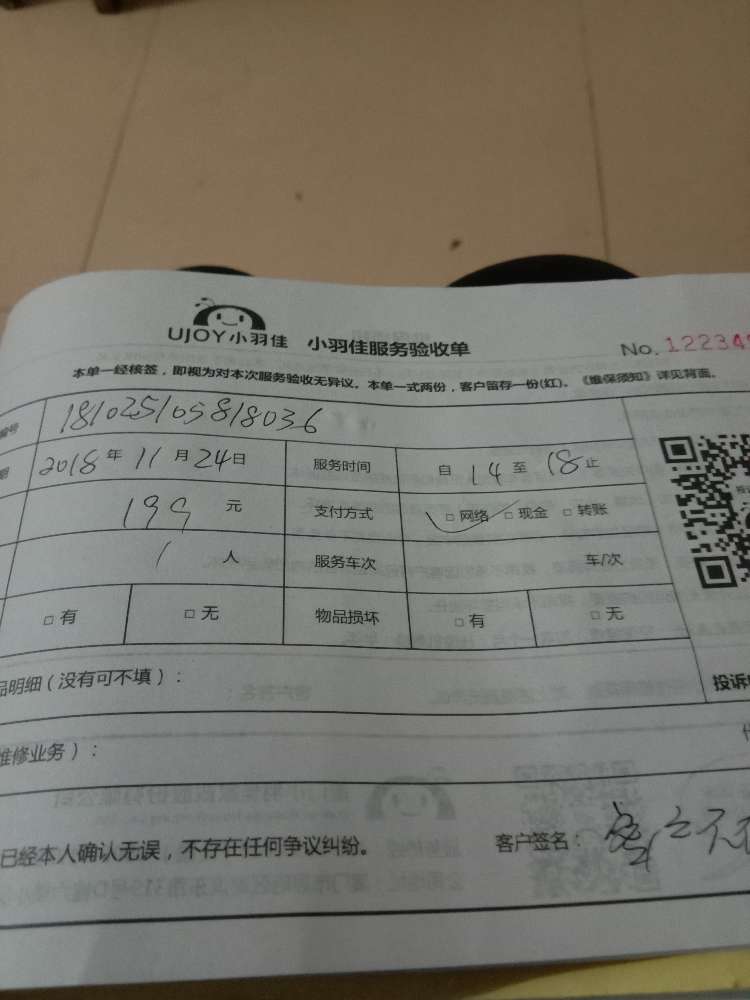 UJOY小羽佳 小羽佳服务验收单 No. 12234
本单一经核签，即视为对本次服务验收无异议。本单一式两份，客户留存一份(红)。《维保须知》详见背面。
编号 181025105818036
期 2018年 11月 24日 服务时间 自 14 至 18 止
199 元 支付方式 □ 网络 □ 现金 □ 转账
1 人 服务车次 车/次
□ 有 □ 无 物品损坏 □ 有 □ 无
品明细（没有可不填）： 投诉
维修业务）：
已经本人确认无误，不存在任何争议纠纷。 客户签名：